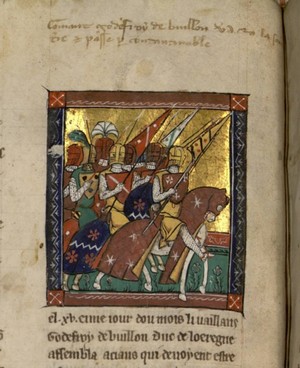 Comant godefroy de buillon
et passe p constantinoble
el .xv. eime iour dou mois li vaillans
Godefroy de buillon duc de loeregne
assembla aciaus qui devoyent estre